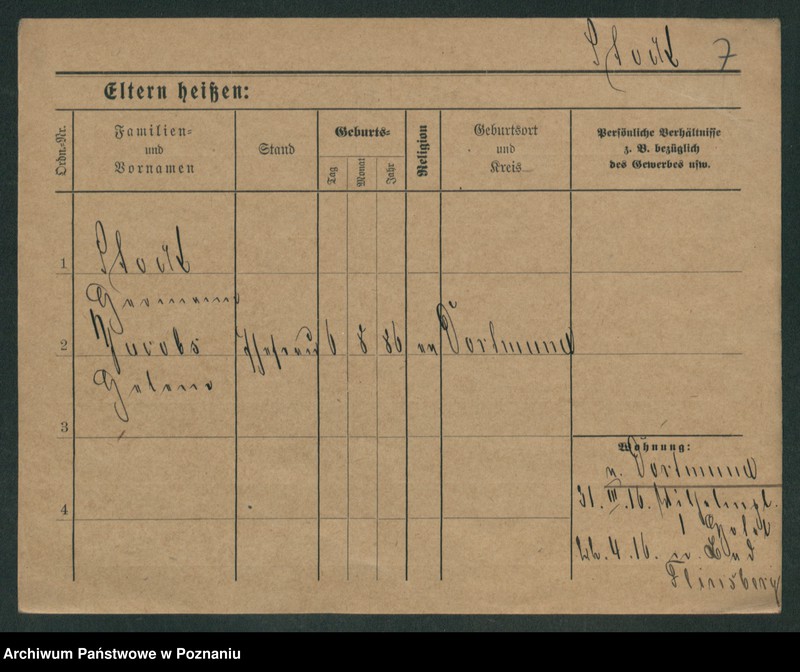 Stock 7
Eltern heißen:
Ordn.-Nr.
Familien-
und
Vornamen
Stand
Geburts-
Tag
Monat
Jahr
Religion
Geburtsort
und
Kreis
Persönliche Verhältnisse
z. B. bezüglich
des Gewerbes usw.
1
Stock
Hermann
2 Jacobs Ehefrau 6 8 86 ev Dortmund
Helene
3
4
Wohnung:
n. Dortmund
31. III. 16. Wilhelmpl.
1 Hotel
4. 16. n. Bad
Flinsberg
Archiwum Państwowe w Poznaniu